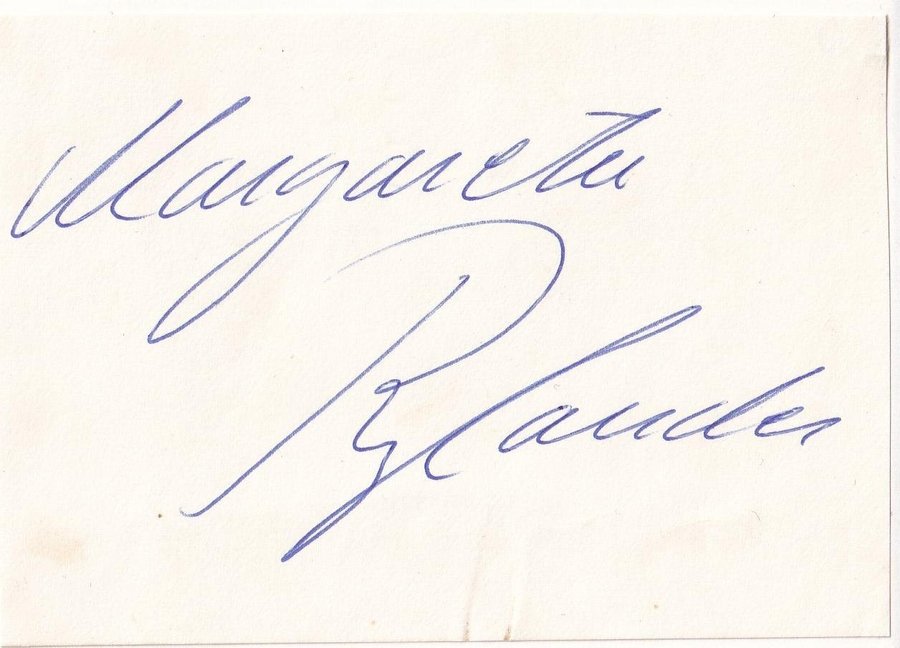 Margaretha
Rylander